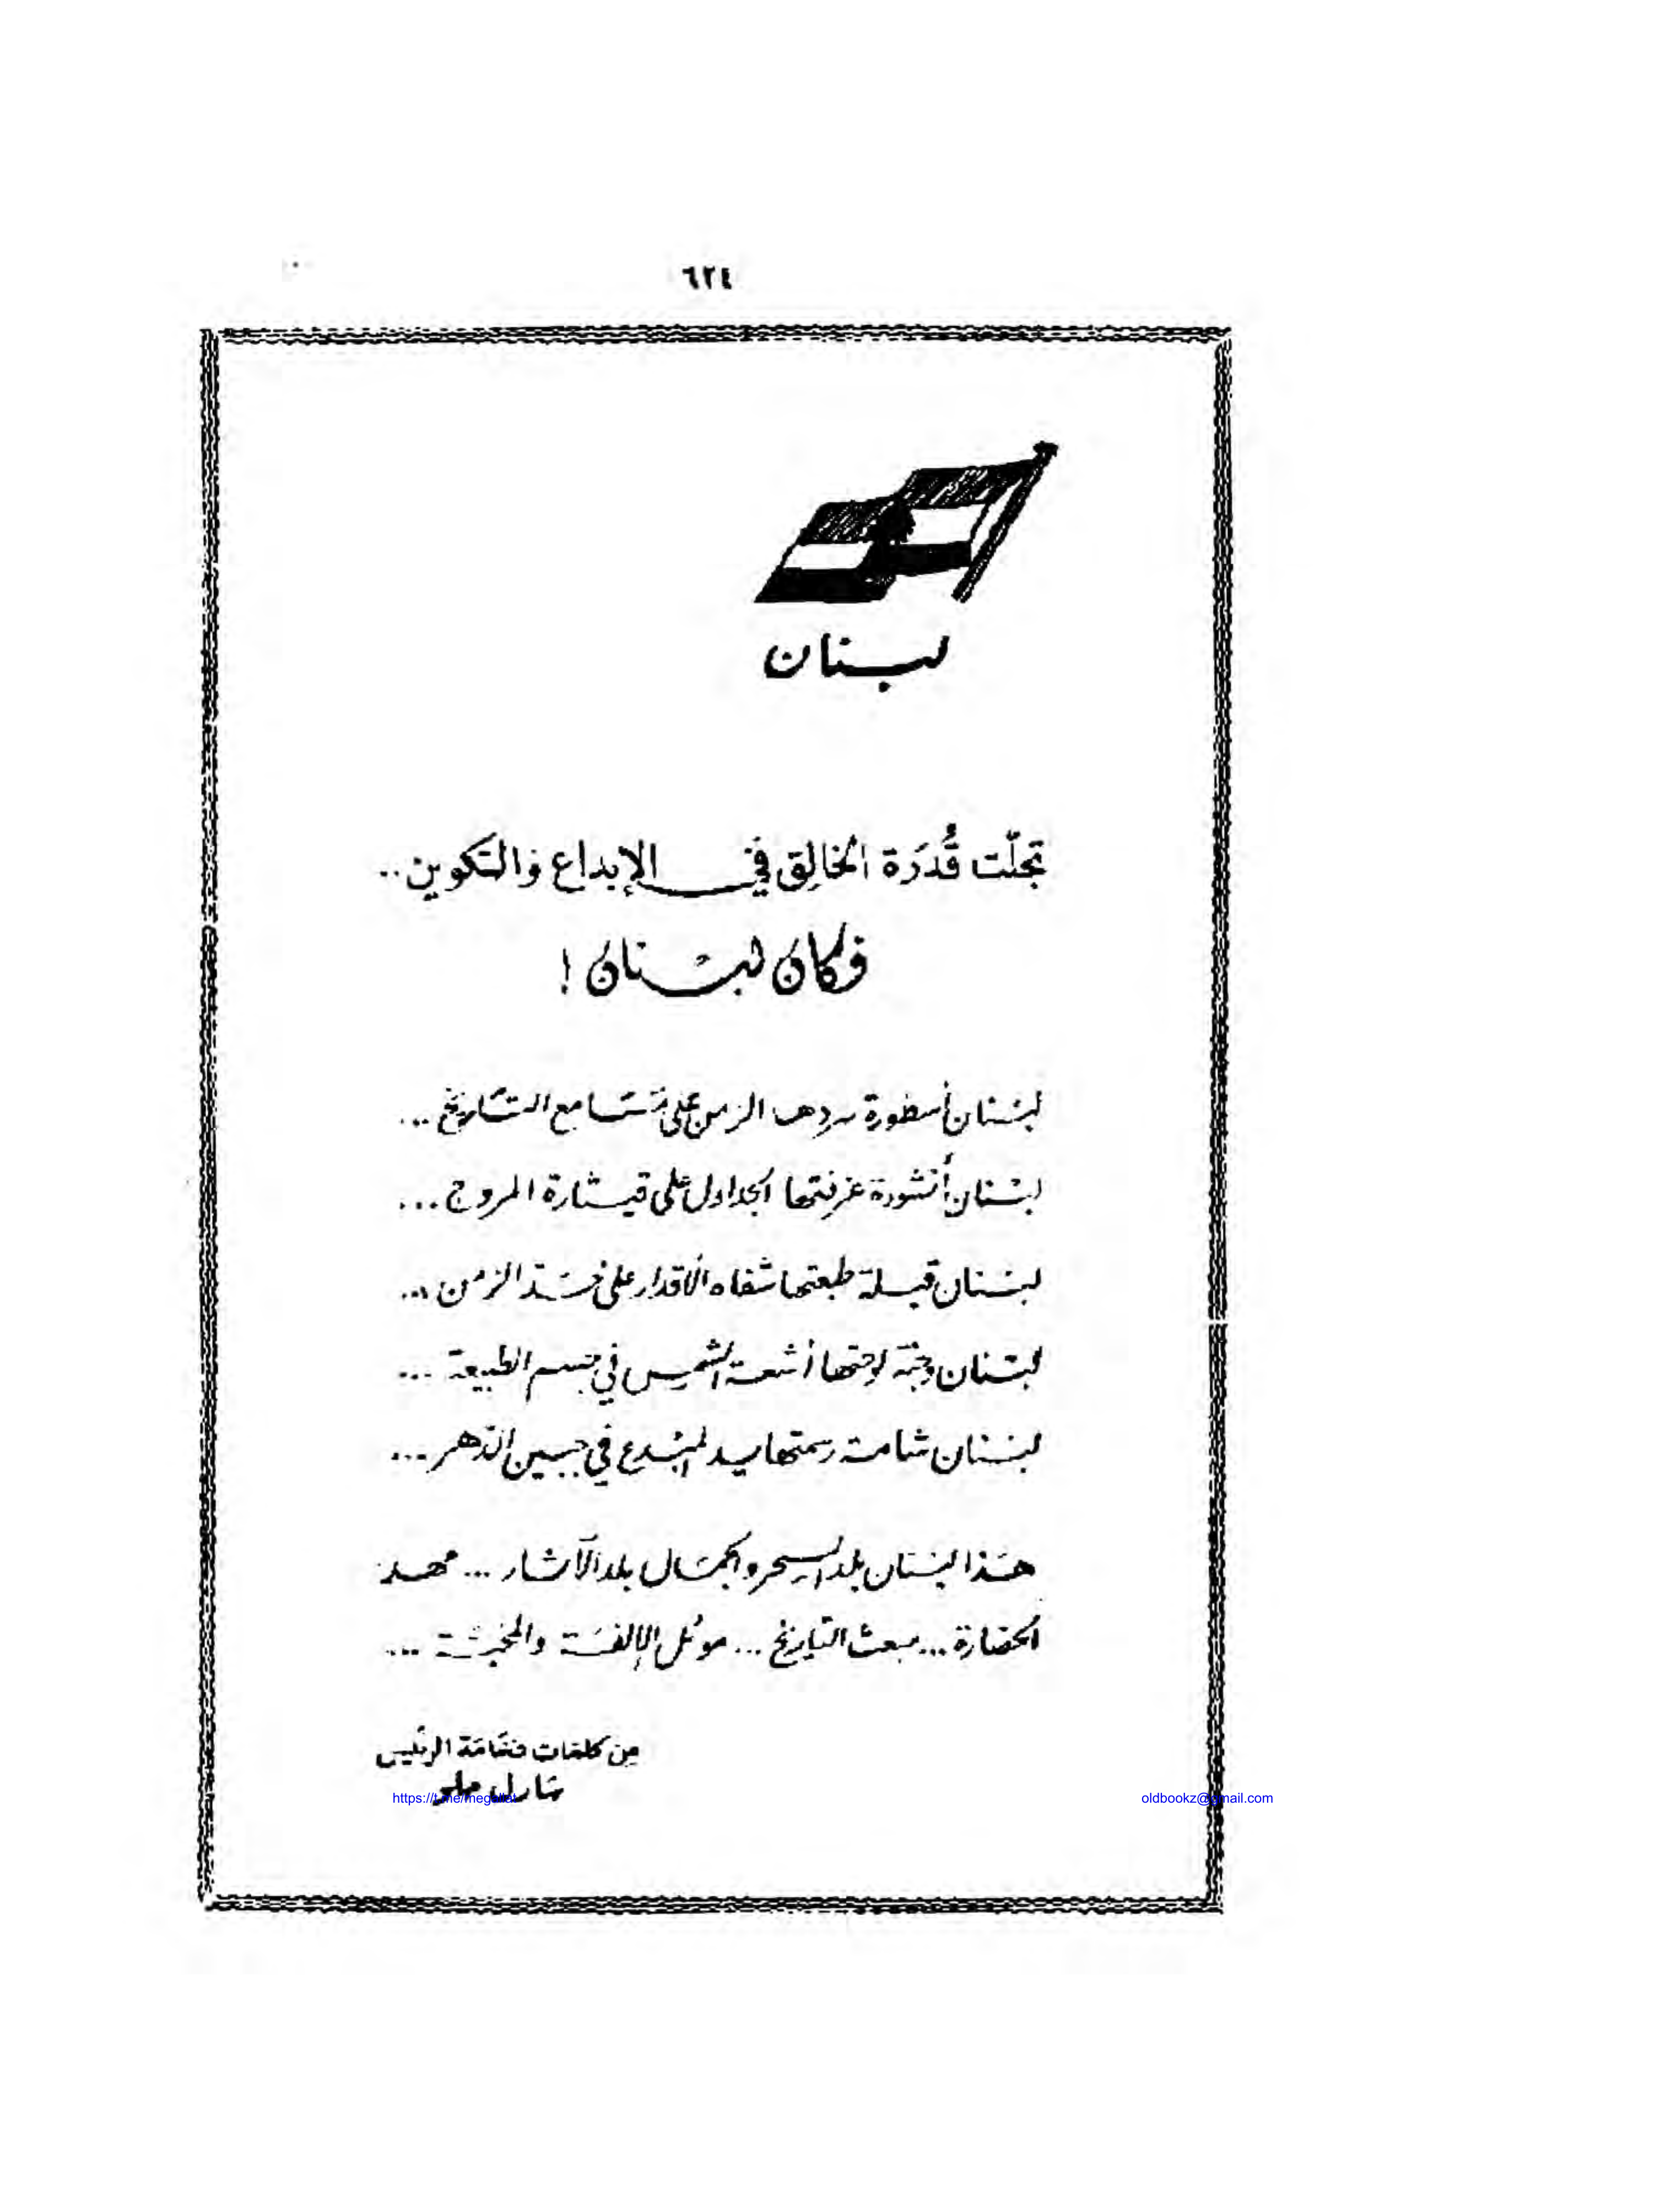 ٦٢٤
لبنان
تجلّت قُدرَة الخالِق في الإبداع والتكوين..
فكان لبْنان !
لبْنان أسطورة سردها الزمن على مَسَامع التاريخ ...
لبْنان أُنشودة عزفتها الجداول على قيثارة المروج ...
لبْنان قبلة طبعتها شفاه الأقدار على خَدّ الزمن ...
لبْنان وجنة لوحتها أشعة الشمس في جسم الطبيعة ...
لبْنان شامة رسمتها يد المبْدع في جبين الدّهر ...
هَذا لبْنان بلد السحر والجمَال بلد الآثار ... مهد
الحضارة ... مبعث التاريخ ... موئل الإلفَة والمحبَّة ...
من كلمات فخامَة الرئيس
شارل حلو
https://t.me/megallat
oldbookz@gmail.com